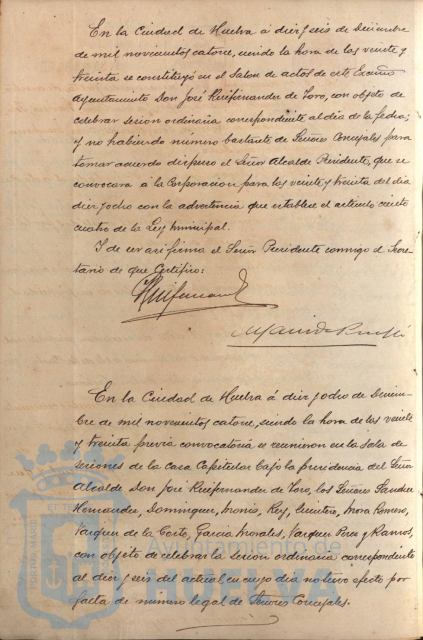 En la Ciudad de Huelva á diez y seis de Diciembre
de mil novecientos catorce, siendo la hora de las veinte y
treinta se constituyó en el Salon de actos de este Excmo
Ayuntamiento Don José Ruifernandez de Toro, con objeto de
celebrar sesion ordinaria correspondiente al dia de la fecha;
y no habiendo número bastante de Señores Concejales para
tomar acuerdo dispuso el Señor Alcalde Presidente, que se
convocara á la Corporacion para las veinte y treinta del dia
diez y ocho con la advertencia que establece el artículo ciento
cuatro de la Ley Municipal.
Y de ser asi firma el Señor Presidente conmigo el Secre-
tario de que Certifico:
En la Ciudad de Huelva á diez y ocho de Diciem-
bre de mil novecientos catorce, siendo la hora de las veinte
y treinta previa convocatoria se reunieron en la sala de
sesiones de la Casa Capitular bajo la presidencia del Señor
Alcalde Don José Ruifernandez de Toro, los Señores Sanchez
Hernandez, Dominguez, Rey, Mora Romero,
Vazquez de la Corte, Garcia Morales, Vazquez Perez y Ramos,
con objeto de celebrar la sesion ordinaria correspondiente
al diez y seis del actual en cuyo dia no tuvo efecto por
falta de número legal de Señores Concejales.
Ayuntamiento de
HUELVA